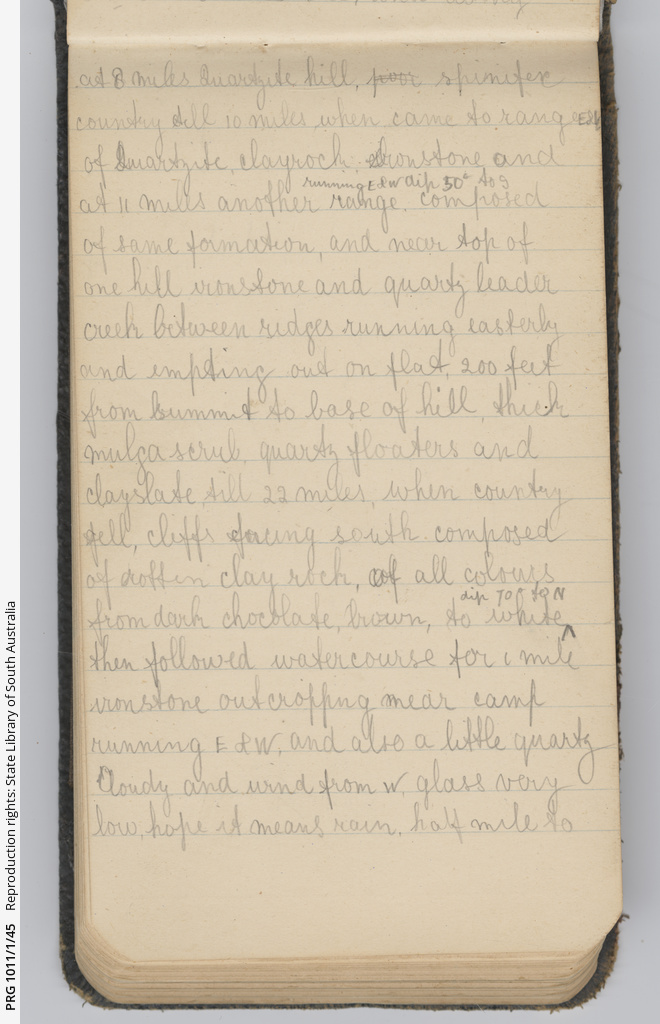 at 8 miles Quartzite hill, poor spinifex
country till 10 miles when came to range E&W
of Quartzite, clayrock, ironstone and
running E&W dip 50° to S
at 11 miles another range composed
of same formation, and near top of
one hill ironstone and quartz leader
creek between ridges running easterly
and empting out on flat, 200 feet
from summit to base of hill, thick
mulga scrub, quartz floaters and
clayslate, till 22 miles, when country
fell, cliffs facing south composed
of rotten clay rock, of all colours
dip 70° to N
from dark chocolate, brown, to white ^
then followed watercourse for 1 mile
ironstone outcropping near camp
running E & W, and also a little quartz
Cloudy and wind from W, glass very
low, hope it means rain, half mile to
PRG 1011/1/45 Reproduction rights: State Library of South Australia